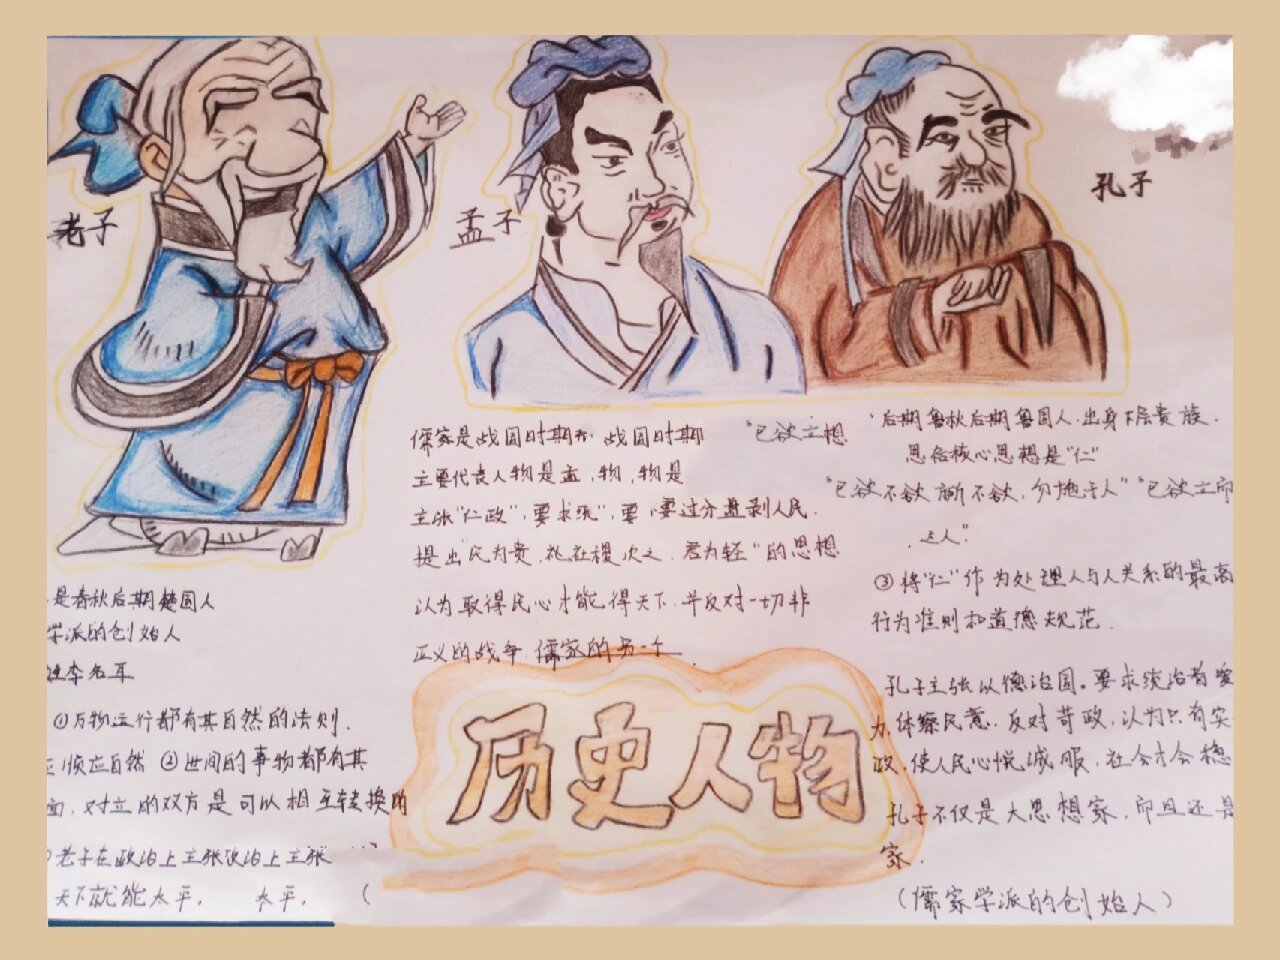 老子
是春秋后期楚国人
学派的创始人
姓李名耳
①万物运行都有其自然的法则.
顺应自然 ②世间的事物都有其
面,对立的双方是可以相互转换的
老子在政治上主张政治上主张
天下就能太平, 太平, (
孟子
儒家是战国时期 战国时期 "己欲立想
主要代表人物是孟,物,物是
主张"仁政",要求统",要 要过分盘剥人民.
提出"民为贵, 社稷次之.君为轻"的思想
认为取得民心才能得天下,并反对一切非
正义的战争 儒家的另一个
历史人物
孔子
后期鲁秋后期鲁国人,出身下层贵族.
思 核心思想是"仁"
"己欲不欲 所不欲,勿施于人" "己欲立即
达人"
③将"仁"作为处理人与人关系的最高
行为准则和道德规范.
孔子主张以德治国。要求统治者爱
力,体察民意.反对苛政,认为只有实
政,使人民心悦诚服,社会才会稳
孔子不仅是大思想家,即且还是
家.
(儒家学派的创始人)